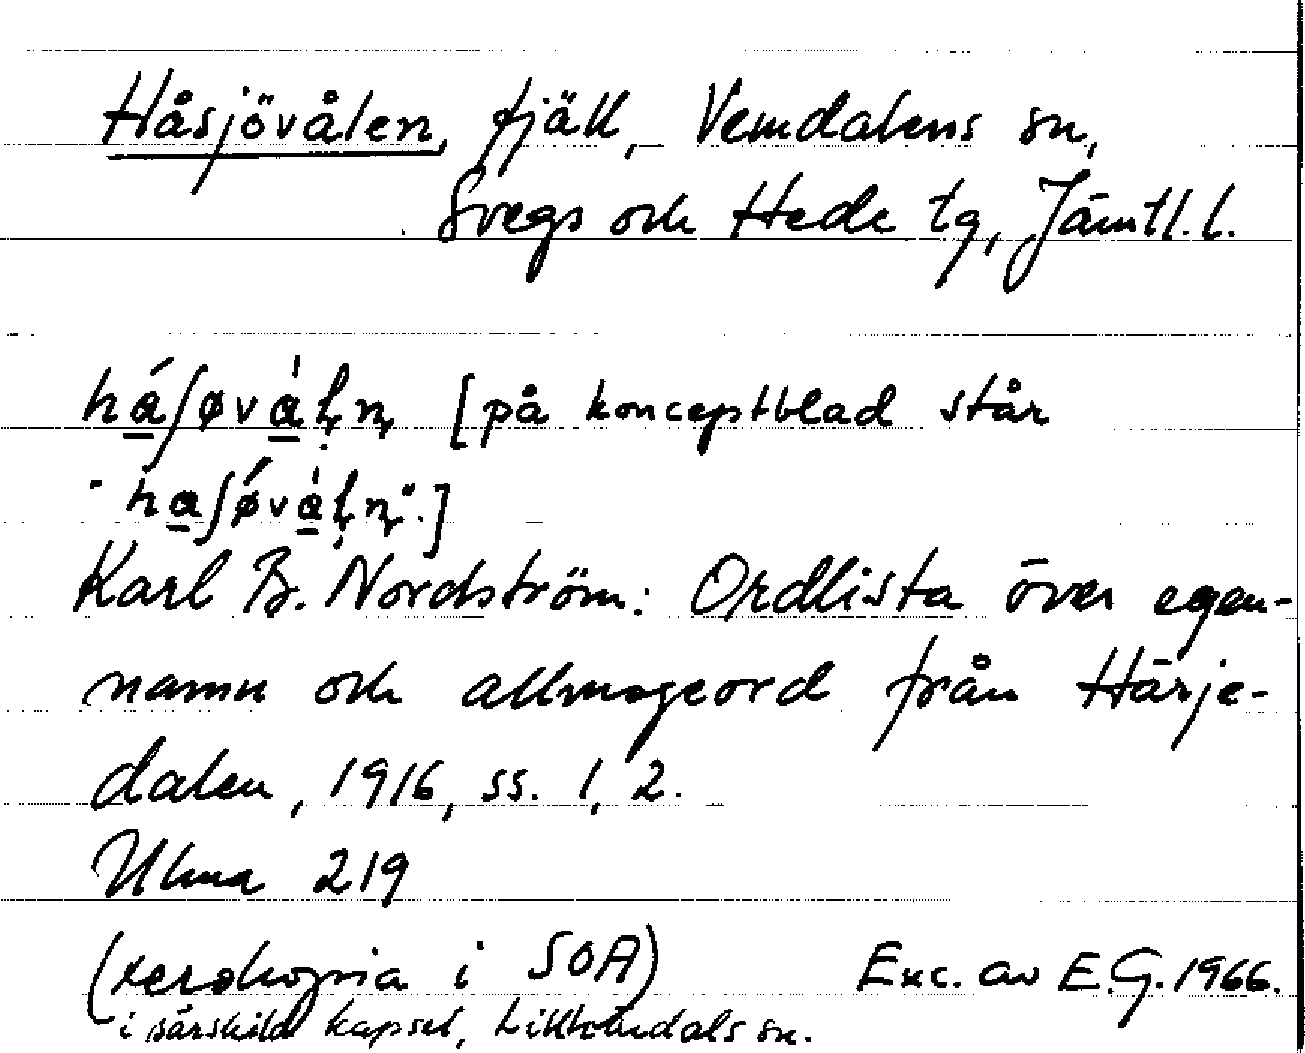 Håsjövålen, fjäll, Vemdalens sn,
Svegs och Hede tg, Jämtl. l.
há̱ʃøvà̱ḷn̥ [på konceptblad står
"ha̱ʃǿvà̱ḷn̥".]
Karl B. Nordström: Ordlista över egen-
namn och allmogeord från Härje-
dalen, 1916, ss. 1, 2.
Ulma 219
(xerokopia i SOA) Exc. av E.G. 1966.
i särskild kapsel, Lillhärdals sn.